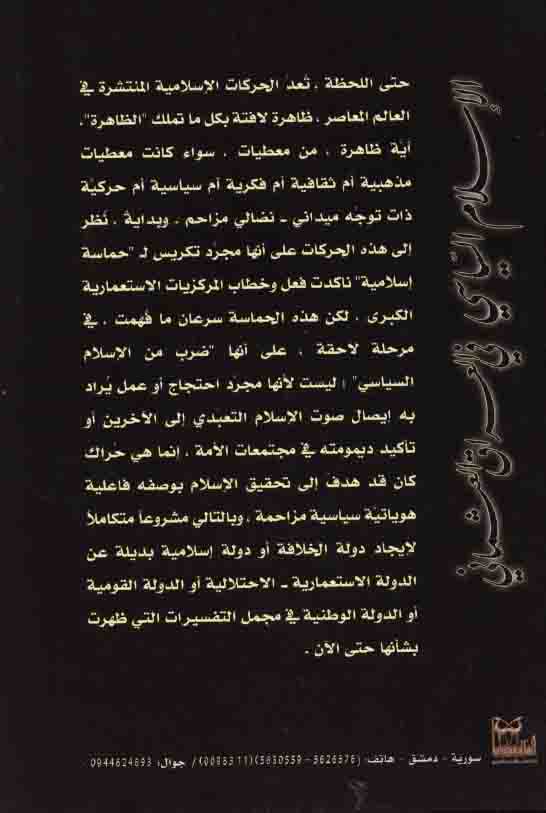 الإسلام السياسي في العراق العثماني
حتى اللحظة ، تُعدّ الحركات الإسلامية المنتشرة في
العالم المعاصر ، ظاهرة لافتة بكل ما تملك "الظاهرة"،
أيّة ظاهرة ، من معطيات ، سواء كانت معطيات
مذهبية أم ثقافية أم فكرية أم سياسية أم حركيّة
ذات توجّه ميداني - نضالي مزاحم ، وبدايةً ، نُظر
إلى هذه الحركات على أنها مجرّد تكريس لـ "حماسة
إسلامية" ناكدت فعل وخطاب المركزيات الاستعمارية
الكبرى ، لكن هذه الحماسة سرعان ما فُهمت ، في
مرحلة لاحقة ، على أنها "ضرب من الإسلام
السياسي" ؛ ليست لأنها مجرّد احتجاج أو عمل يُراد
به إيصال صوت الإسلام التعبدي إلى الآخرين أو
تأكيد ديمومته في مجتمعات الأمة ، إنما هي حَراك
كان قد هدف إلى تحقيق الإسلام بوصفه فاعلية
هوياتيّة سياسية مزاحمة ، وبالتالي مشروعاً متكاملاً
لإيجاد دولة الخلافة أو دولة إسلامية بديلة عن
الدولة الاستعمارية - الاحتلالية أو الدولة القومية
أو الدولة الوطنية في مجمل التفسيرات التي ظهرت
بشأنها حتى الآن .
سورية - دمشق - هاتف: (5626376 - 5630559)(0096311) / جوال: 0944624693